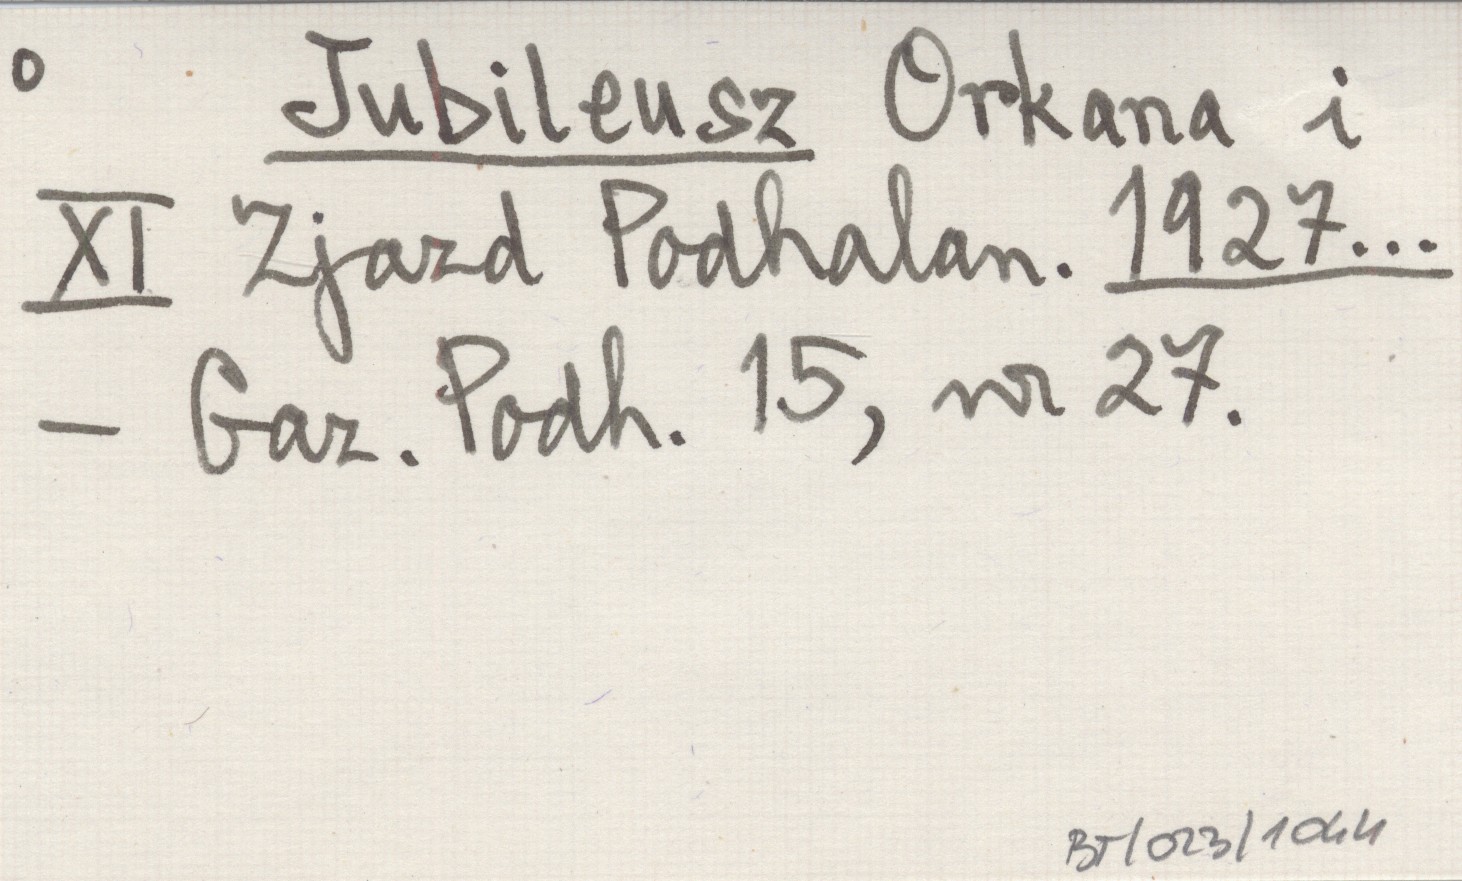 o Jubileusz Orkana i
XI Zjazd Podhalan. 1927...
— Gaz. Podh. 15, nr 27.
BT/023/1044